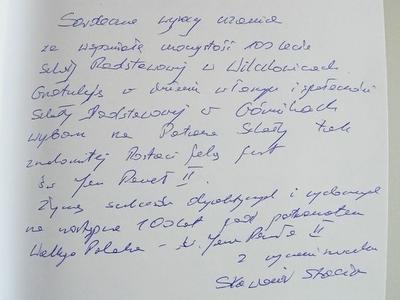 Serdeczne wyrazy uznania
za wspaniałą uroczystość 100 lecia
Szkoły Podstawowej w Witchowicach
Gratuluję w imieniu własnym i społeczności
Szkoły Podstawowej w
wyboru na Patrona Szkoły tak
znakomitej Postaci jaką jest
św. Jan Paweł II.
Życzę sukcesów dydaktycznych i wychowawczych
na następne 100 lat pod patronatem
Wielkiego Polaka - św. Jana Pawła II
Z wyrazami szacunku
Sławomir